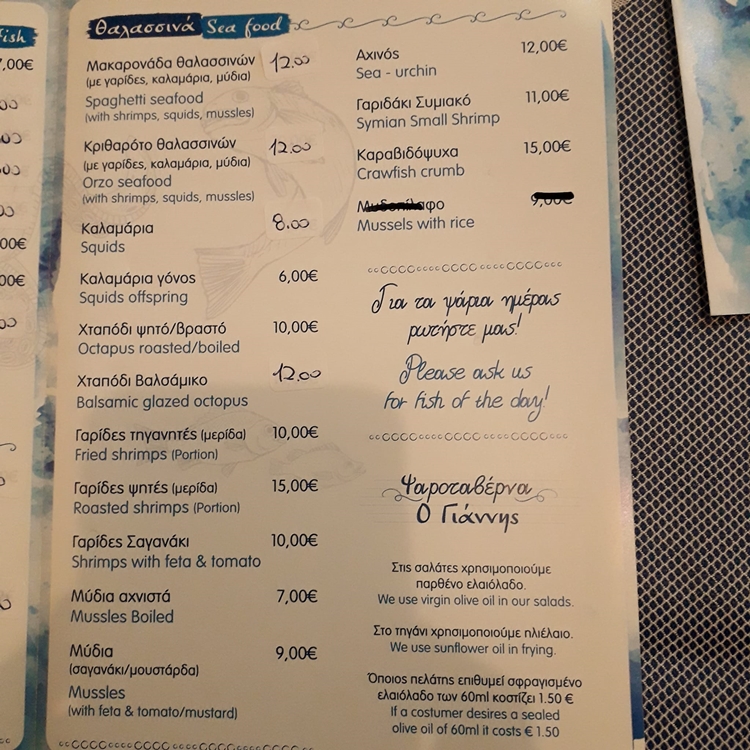 ish
7,00€
00€
00€
Θαλασσινά Sea food
Μακαρονάδα θαλασσινών 12.00
(με γαρίδες, καλαμάρια, μύδια)
Spaghetti seafood
(with shrimps, squids, mussles)
Κριθαρότο θαλασσινών 12.00
(με γαρίδες, καλαμάρια, μύδια)
Orzo seafood
(with shrimps, squids, mussles)
Καλαμάρια 8.00
Squids
Καλαμάρια γόνος 6,00€
Squids offspring
Χταπόδι ψητό/βραστό 10,00€
Octapus roasted/boiled
Χταπόδι Βαλσάμικο 12.00
Balsamic glazed octopus
Γαρίδες τηγανητές (μερίδα) 10,00€
Fried shrimps (Portion)
Γαρίδες ψητές (μερίδα) 15,00€
Roasted shrimps (Portion)
Γαρίδες Σαγανάκι 10,00€
Shrimps with feta & tomato
Μύδια αχνιστά 7,00€
Mussles Boiled
Μύδια 9,00€
(σαγανάκι/μουστάρδα)
Mussles
(with feta & tomato/mustard)
Αχινός 12,00€
Sea - urchin
Γαριδάκι Συμιακό 11,00€
Symian Small Shrimp
Καραβιδόψυχα 15,00€
Crawfish crumb
Μυδοπίλαφο 9,00€
Mussels with rice
Για τα ψάρια ημέρας
ρωτήστε μας!
Please ask us
for fish of the day!
Ψαροταβέρνα
Ο Γιάννης
Στις σαλάτες χρησιμοποιούμε
παρθένο ελαιόλαδο.
We use virgin olive oil in our salads.
Στο τηγάνι χρησιμοποιούμε ηλιέλαιο.
We use sunflower oil in frying.
Όποιος πελάτης επιθυμεί σφραγισμένο
ελαιόλαδο των 60ml κοστίζει 1.50 €
If a costumer desires a sealed
olive oil of 60ml it costs € 1.50